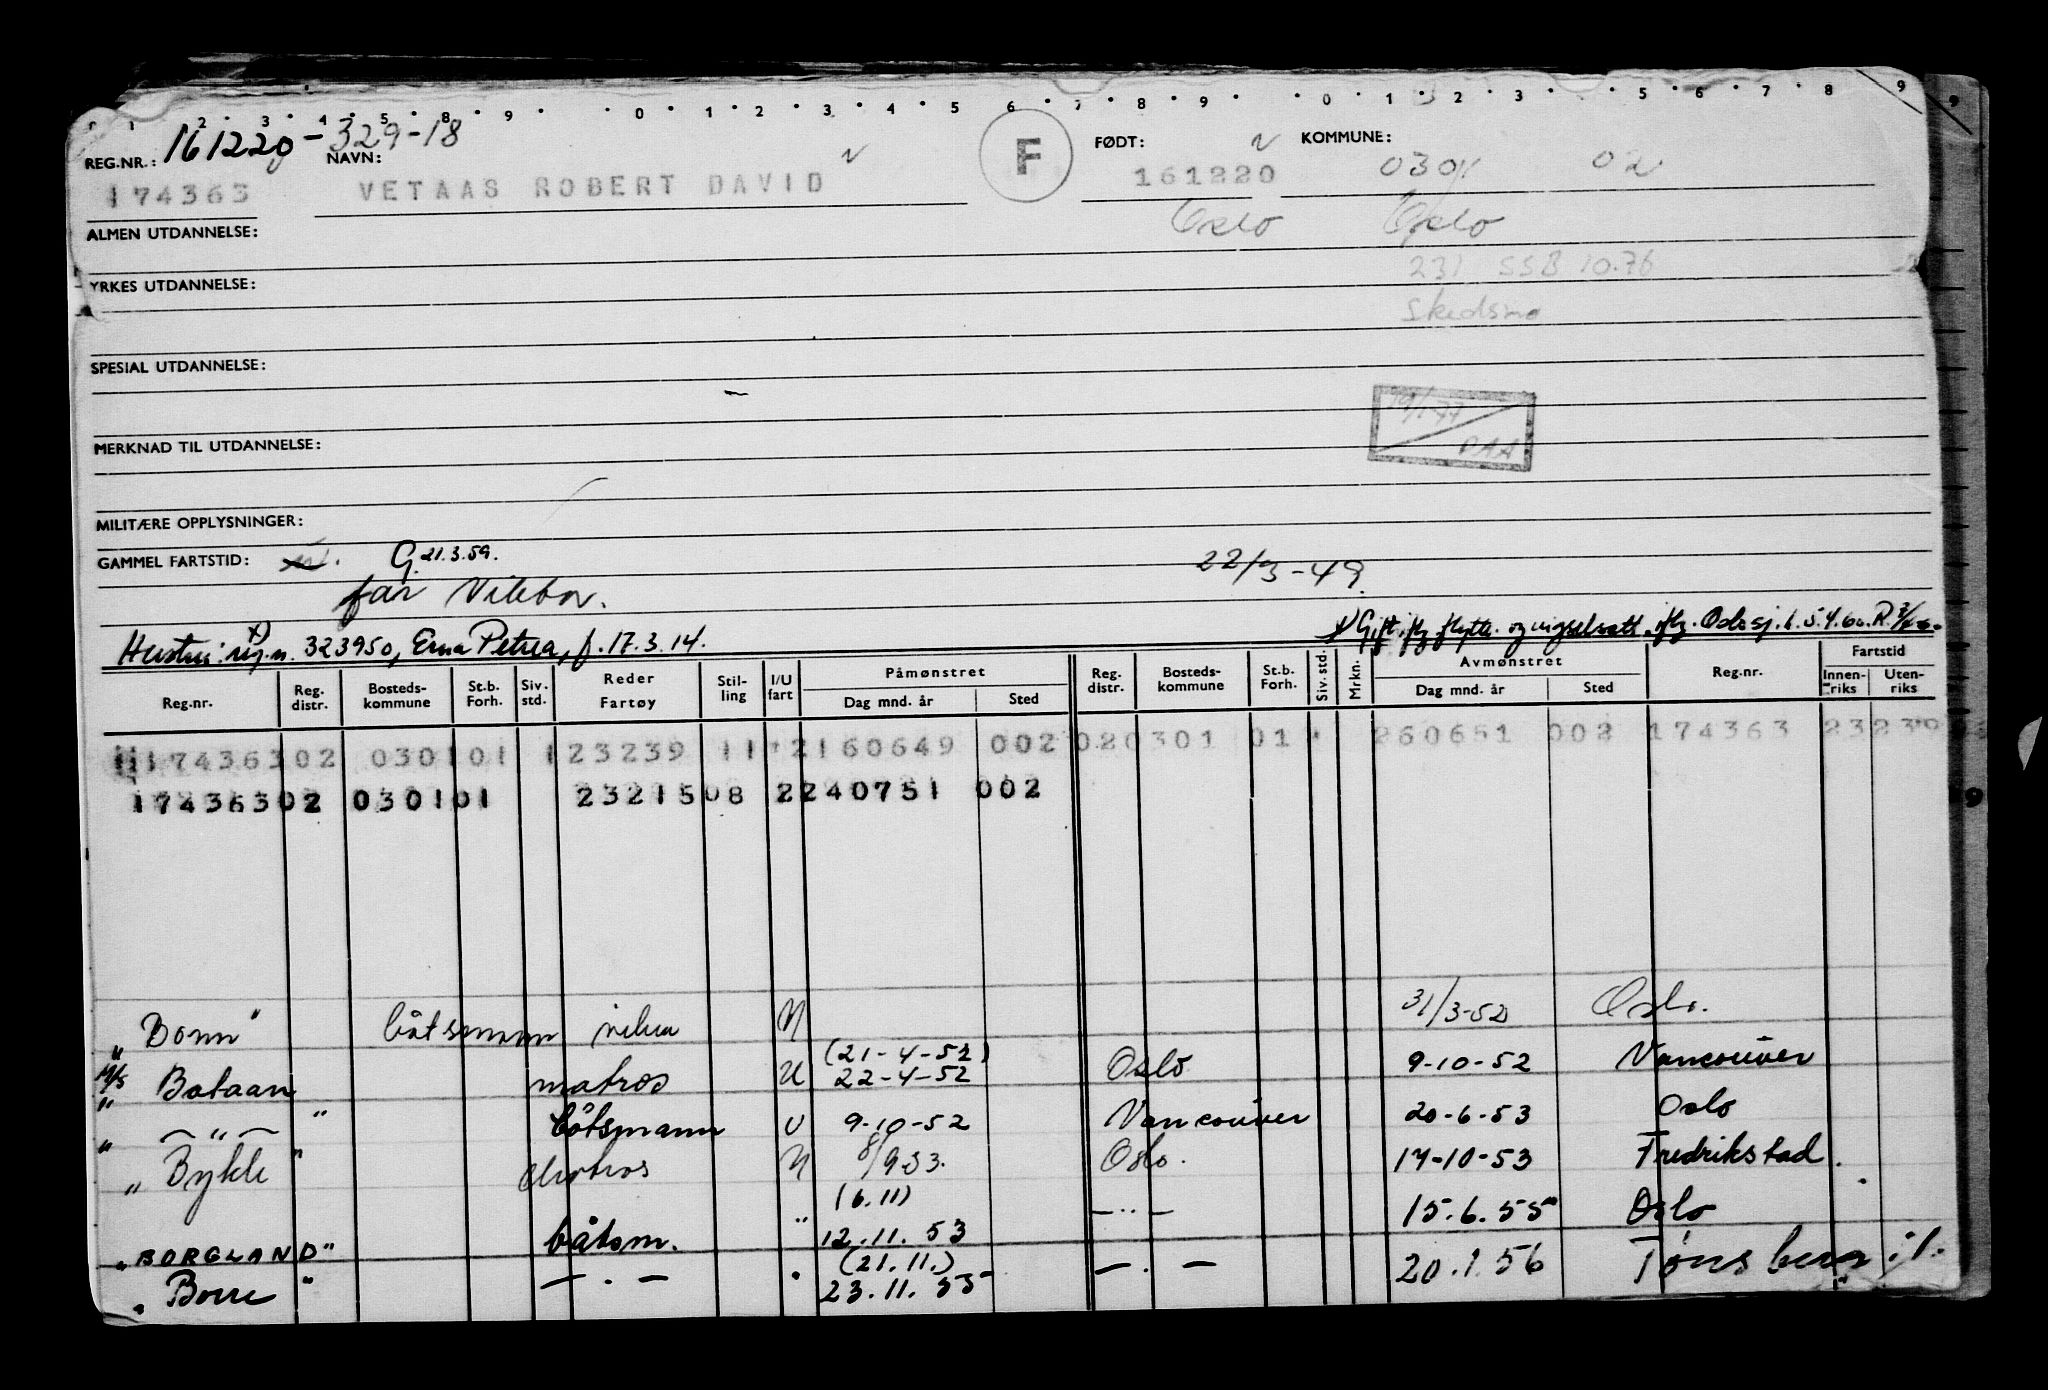 1 2 3 4 5 8 9 0 1 2 3 4 5 6 7 8 9 0 1 2 3 5 6 7 8 9
REG.NR.: 161220-329-18 NAVN: F FØDT: KOMMUNE:
174363 VETAAS ROBERT DAVID 161220 0301 02
ALMEN UTDANNELSE: Oslo Oslo
YRKES UTDANNELSE: 231 SSB 10.76
Skedsmo
SPESIAL UTDANNELSE:
19/1-77
MERKNAD TIL UTDANNELSE: PAA
MILITÆRE OPPLYSNINGER:
GAMMEL FARTSTID: G. 21.3.59. 22/3-49
far
Hustru: reg.n. 323950, Erna Petrea, f. 17.3.14. x) Gift,
Reg.nr. Reg. distr. Bosteds-kommune St.b. Forh. Siv. std. Reder Fartøy Stil-ling I/U fart Påmønstret Dag mnd. år Sted Reg. distr. Bosteds-kommune St.b. Forh. Siv. std. Mrkn. Avmønstret Dag mnd. år Sted Reg.nr. Fartstid Innen-riks Uten-riks
174363 02 0301 01 1 23239 11 2 160649 002 02 0301 01 260651 002 174363 23239
174363 02 0301 01 23215 08 2 240751 002
" Bonn" båtsmann U 31/3-52 Oslo.
M/S Bataan matros U (21-4-52) 22-4-52 Oslo 9-10-52 Vancouver
" — " — " båtsmann U 9-10-52 Vancouver 20-6-53 Oslo
" Bykle " Matros U 8/9-53. Oslo. 17-10-53 Fredrikstad.
"BORGLAND" båtsm. " (6.11) 12.11.53 — " — 15.6.55 Oslo
" Borre " — . — " (21.11.) 23.11.55 — . — 20.1.56 Tønsberg